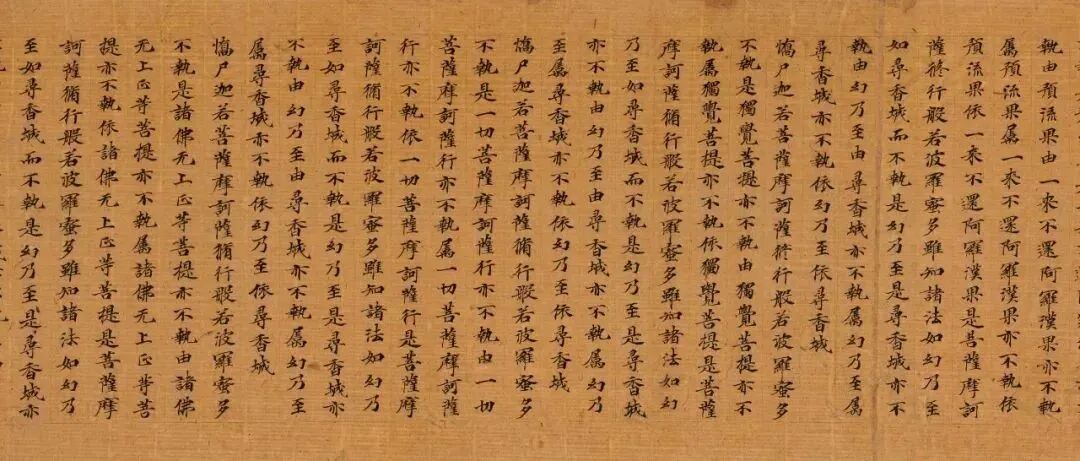 執由預流果由一來不還阿羅漢果亦不執
属預流果属一來不還阿羅漢果亦不執依
預流果依一來不還阿羅漢果是菩薩摩訶
薩脩行般若波羅蜜多雖知諸法如幻乃至
如尋香城而不執是幻乃至是尋香城亦不
執由幻乃至由尋香城亦不執属幻乃至属
尋香城亦不執依幻乃至依尋香城
憍尸迦若菩薩摩訶薩脩行般若波羅蜜多
不執是獨覺菩提亦不執由獨覺菩提亦不
執属獨覺菩提亦不執依獨覺菩提是菩薩
摩訶薩脩行般若波羅蜜多雖知諸法如幻
乃至如尋香城而不執是幻乃至是尋香城
亦不執由幻乃至由尋香城亦不執属幻乃
至属尋香城亦不執依幻乃至依尋香城
憍尸迦若菩薩摩訶薩脩行般若波羅蜜多
不執是一切菩薩摩訶薩行亦不執由一切
菩薩摩訶薩行亦不執属一切菩薩摩訶薩
行亦不執依一切菩薩摩訶薩行是菩薩摩
訶薩脩行般若波羅蜜多雖知諸法如幻乃
至如尋香城而不執是幻乃至是尋香城亦
不執由幻乃至由尋香城亦不執属幻乃至
属尋香城亦不執依幻乃至依尋香城
憍尸迦若菩薩摩訶薩脩行般若波羅蜜多
不執是諸佛无上正等菩提亦不執由諸佛
无上正等菩提亦不執属諸佛无上正等菩
提亦不執依諸佛无上正等菩提是菩薩摩
訶薩脩行般若波羅蜜多雖知諸法如幻乃
至如尋香城而不執是幻乃至是尋香城亦